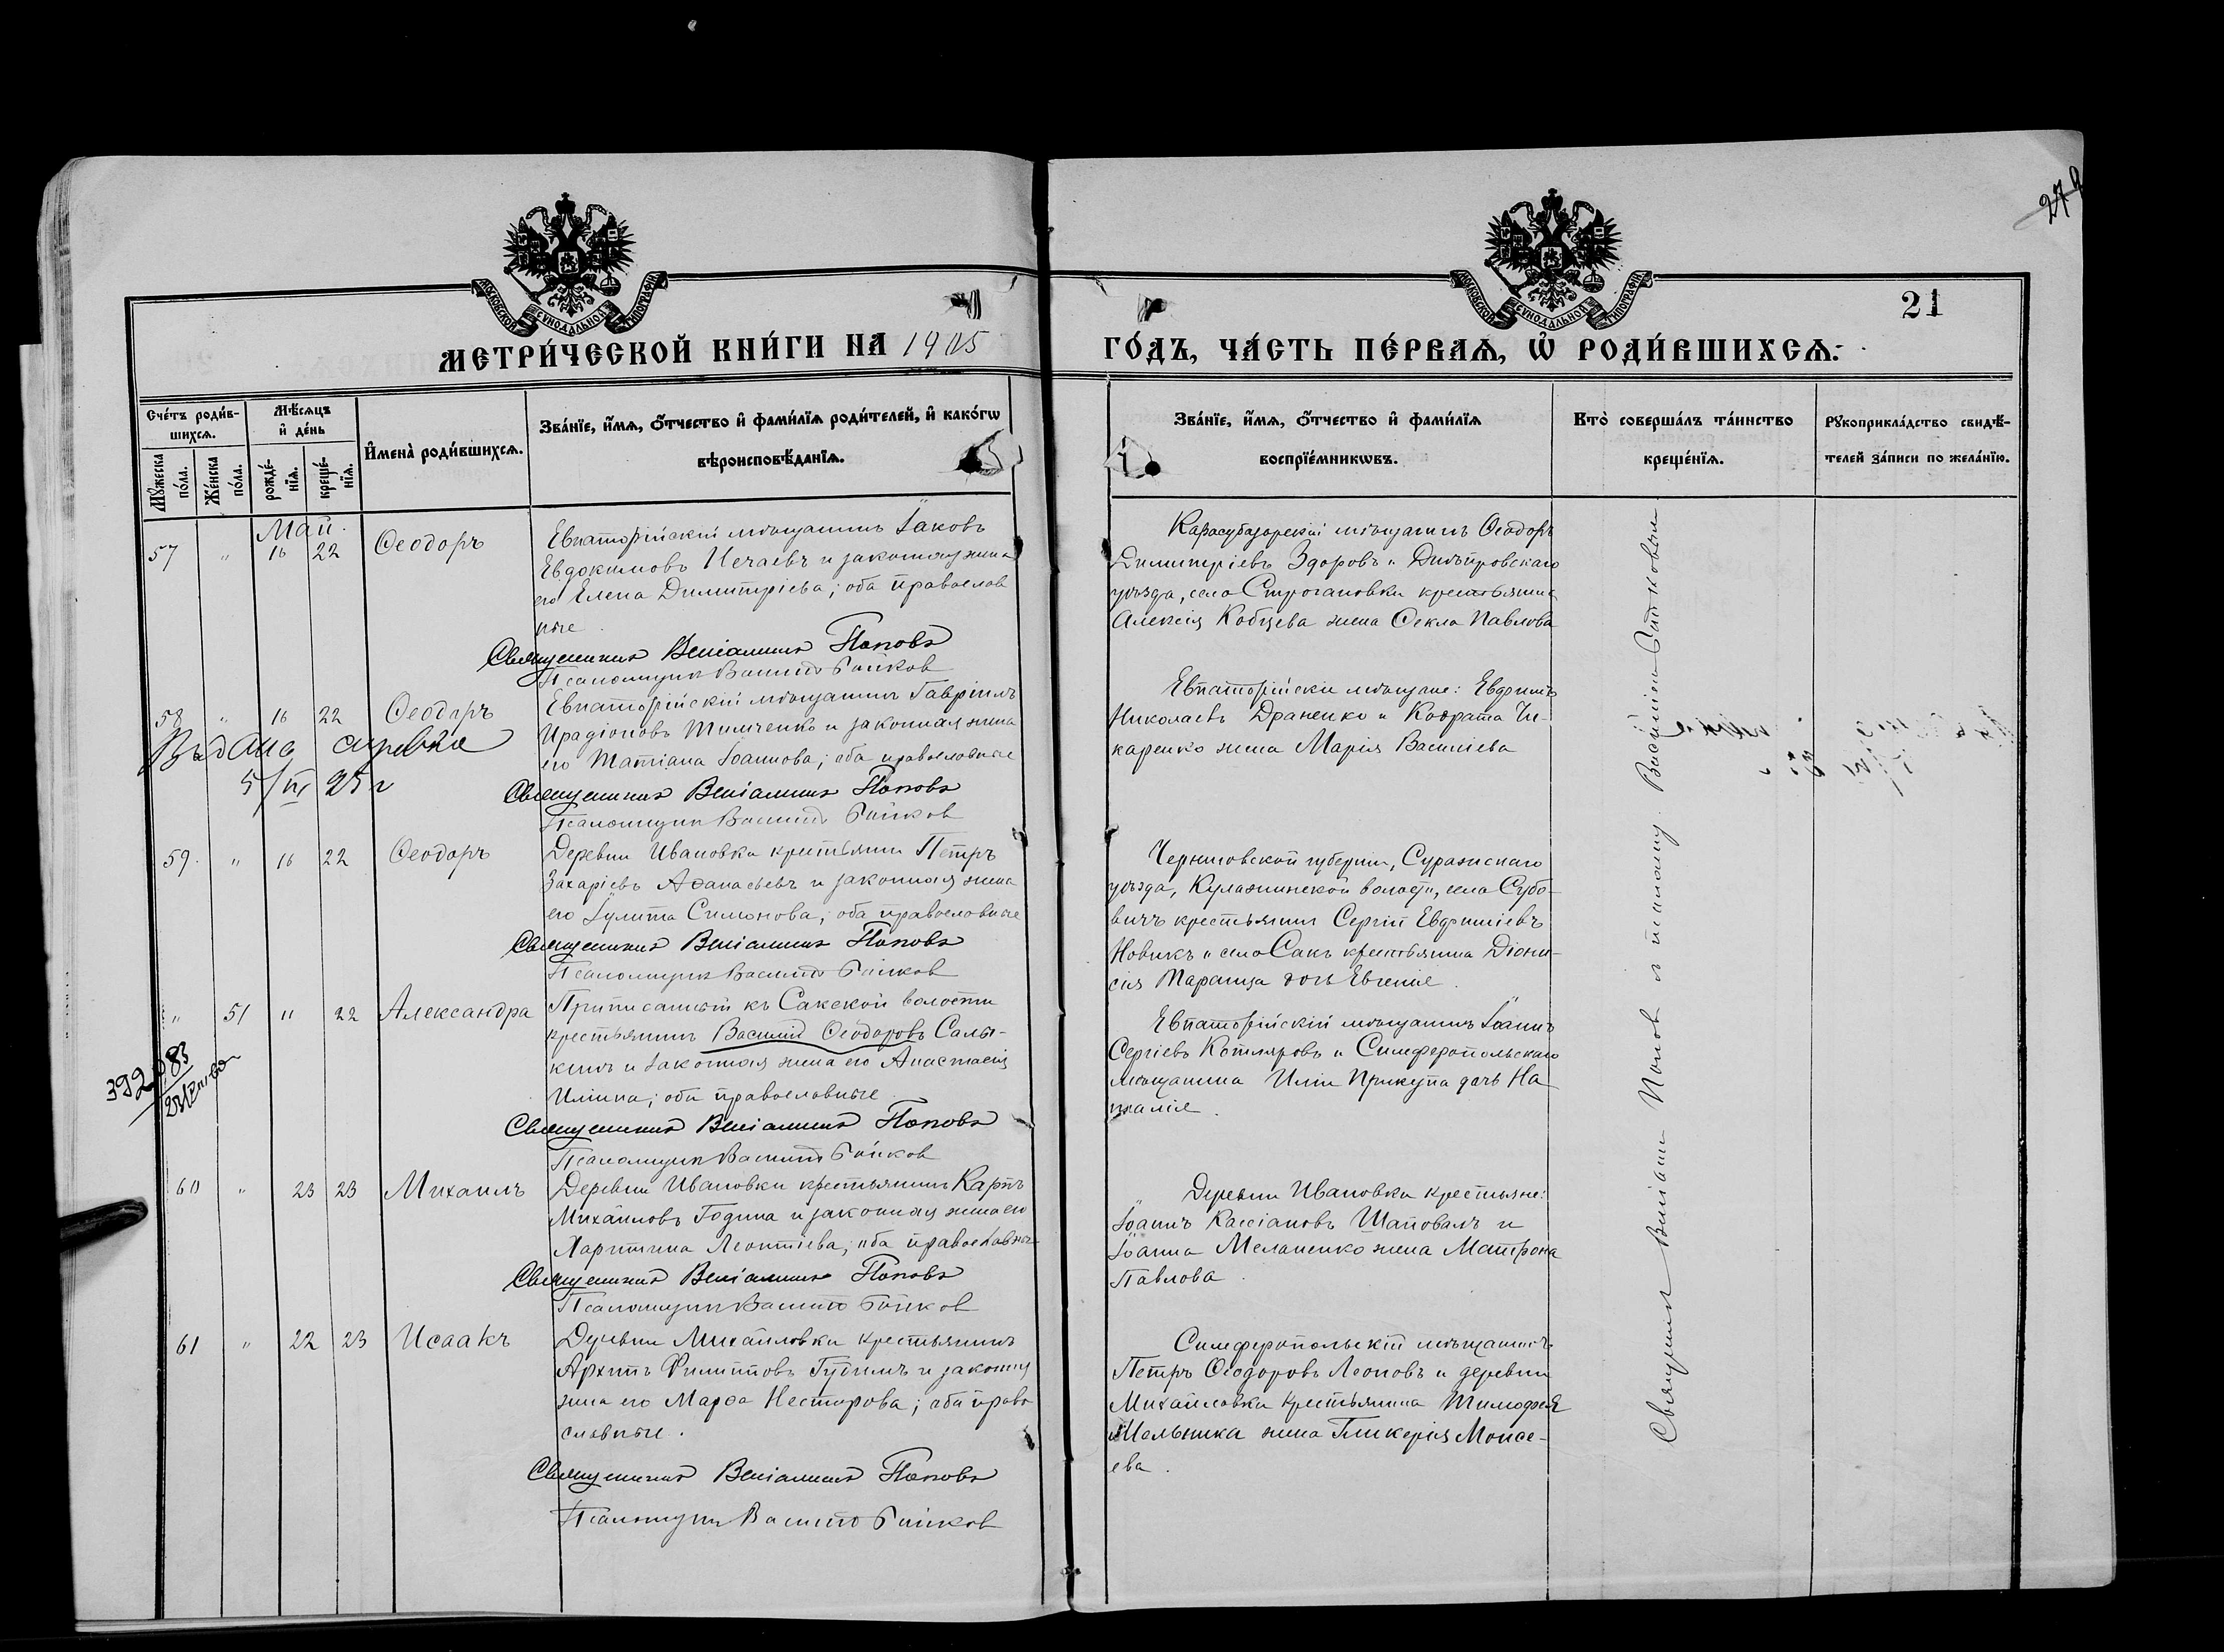 27
21
МОСКОВСКОЙ СУНОДАЛЬНОЙ ТИПОГРАФІИ
МОСКОВСКОЙ СУНОДАЛЬНОЙ ТИПОГРАФІИ
МЕТРИ́ЧЕСКОЙ КНИ́ГИ НА 1905
ГО́ДЪ, ЧА́СТЬ ПЕ́РВАѦ, Ѡ҆ РОДИ́ВШИХСѦ.
Сче́тъ роди́в-
шихсѧ.
Мꙋ́жеска по́ла.
Же́нска по́ла.
Мѣ́сѧцъ
и҆ де́нь
рожде́-
нїѧ.
креще́-
нїѧ.
И҆мена̀ роди́вшихсѧ.
Зва́нїе, и҆́мѧ, ѻ҆́тчество и҆ фами́лїѧ роди́телей, и҆ како́гѡ
вѣроисповѣ́данїѧ.
Зва́нїе, и҆́мѧ, ѻ҆́тчество и҆ фами́лїѧ
воспрїе́мникѡвъ.
Кто̀ соверша́лъ та́инство
креще́нїѧ.
Рꙋкоприкла́дство свидѣ́-
телей за́писи по жела́нїю.
Май.
57 " 16 22 Ѳеодоръ
Евпаторійскій мѣщанинъ Іаковъ
Евдокимовъ Нечаевъ и законная жена
его Елена Димитріева; оба православ
ные.
Священникъ Веніаминъ Поповъ
Псаломщик Василій Бойков
Карасубазарскій мѣщанинъ Ѳеодоръ
Димитріевъ Здоровъ и Днѣпровскаго
уѣзда, села Строгановки крестьянина
Алексія Кобцева жена Ѳекла Павлова
58 " 16 22 Ѳеодоръ
Выдана справка
5/VI 25 г
Евпаторійскій мѣщанинъ Гавріилъ
Иродіоновъ Тимченко и законная жена
его Татіана Іоаннова; оба православные
Священникъ Веніаминъ Поповъ
Псаломщик Василій Бойков
Евпаторійскіе мѣщане: Евфимій
Николаевъ Драненко и Кодрата Чи-
каренко жена Марія Василіева
59. " 16 22 Ѳеодоръ
Деревни Ивановки крестьянин Петръ
Захаріевъ Аѳанасьевъ и законная жена
его Іулита Симонова; оба православные
Священникъ Веніаминъ Поповъ
Псаломщик Василій Бойков
Черниговской губерніи, Суражскаго
уѣзда, Кулажинской волости, села Субо-
вичъ крестьянинъ Сергій Евфиміевъ
Новикъ и села Сакъ крестьянина Діони-
сія Таранца дочь Евгенія.
" 51 " 22 Александра
392 083
Приписанный къ Сакской волости
крестьянинъ Василій Ѳеодоровъ Салы-
кинъ и законная жена его Анастасія
Иліина; оба православные
Священникъ Веніаминъ Поповъ
Псаломщик Василій Бойков
Евпаторійскій мѣщанинъ Іоаннъ
Сергіевъ Котляровъ и Симферопольскаго
мѣщанина Иліи Прикупа дочь На
талія.
60 " 23 23 Михаилъ
Деревни Ивановки крестьянинъ Карпъ
Михайловъ Година и законная жена его
Харитина Леонтіева; оба православные
Священникъ Веніаминъ Поповъ
Псаломщик Василій Бойков
Деревни Ивановки крестьяне:
Іоаннъ Кассіановъ Шаповалъ и
Іоанна Меланенко жена Матрона
Павлова.
61 " 22 23 Исаакъ
Деревни Михайловки крестьянинъ
Архипъ Филипповъ Гудимъ и законная
жена его Марѳа Несторова; оба право
славные.
Священникъ Веніаминъ Поповъ
Псаломщик Василій Бойков
Симферопольскій мѣщанинъ
Петръ Ѳеодоровъ Леоновъ и деревни
Михайловки крестьянина Тимофея
Мельника жена Гликерія Моисе-
ева.
Священник Веніамин Попов с псаломщ. Василіем Бойковым